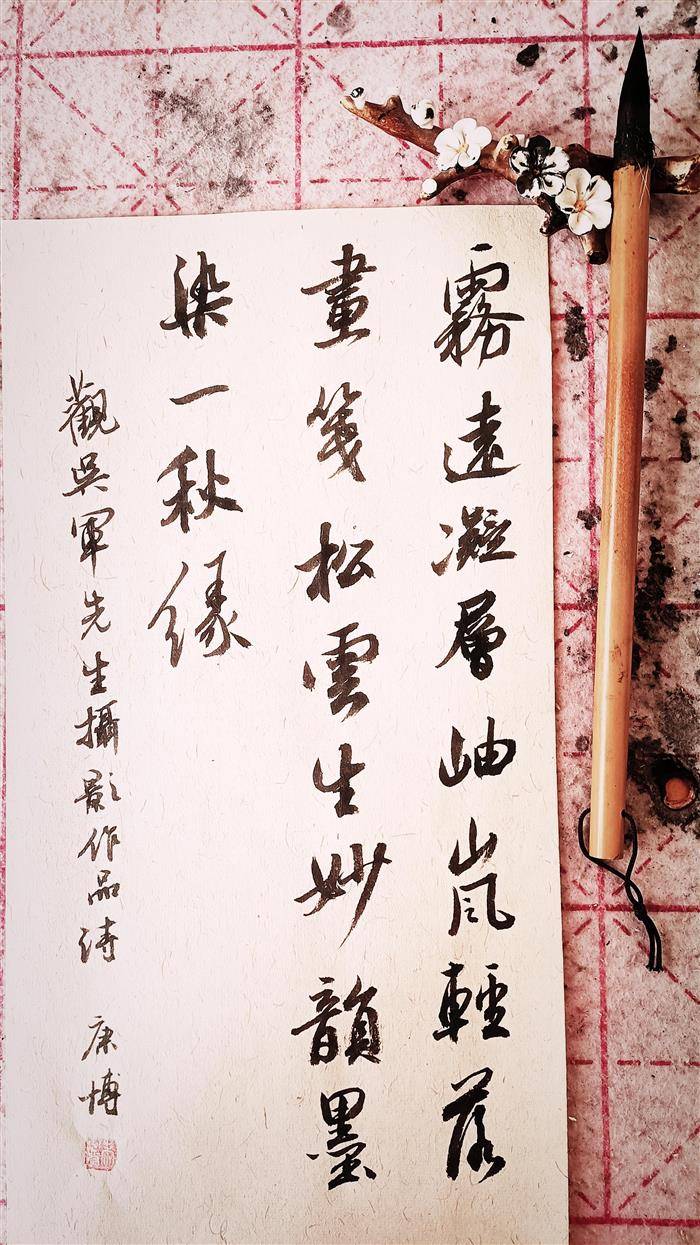 霧遠凝層岫嵐輕落
畫箋松雲生妙韻墨
染一秋緣
觀吳軍先生攝影作品詩 康博